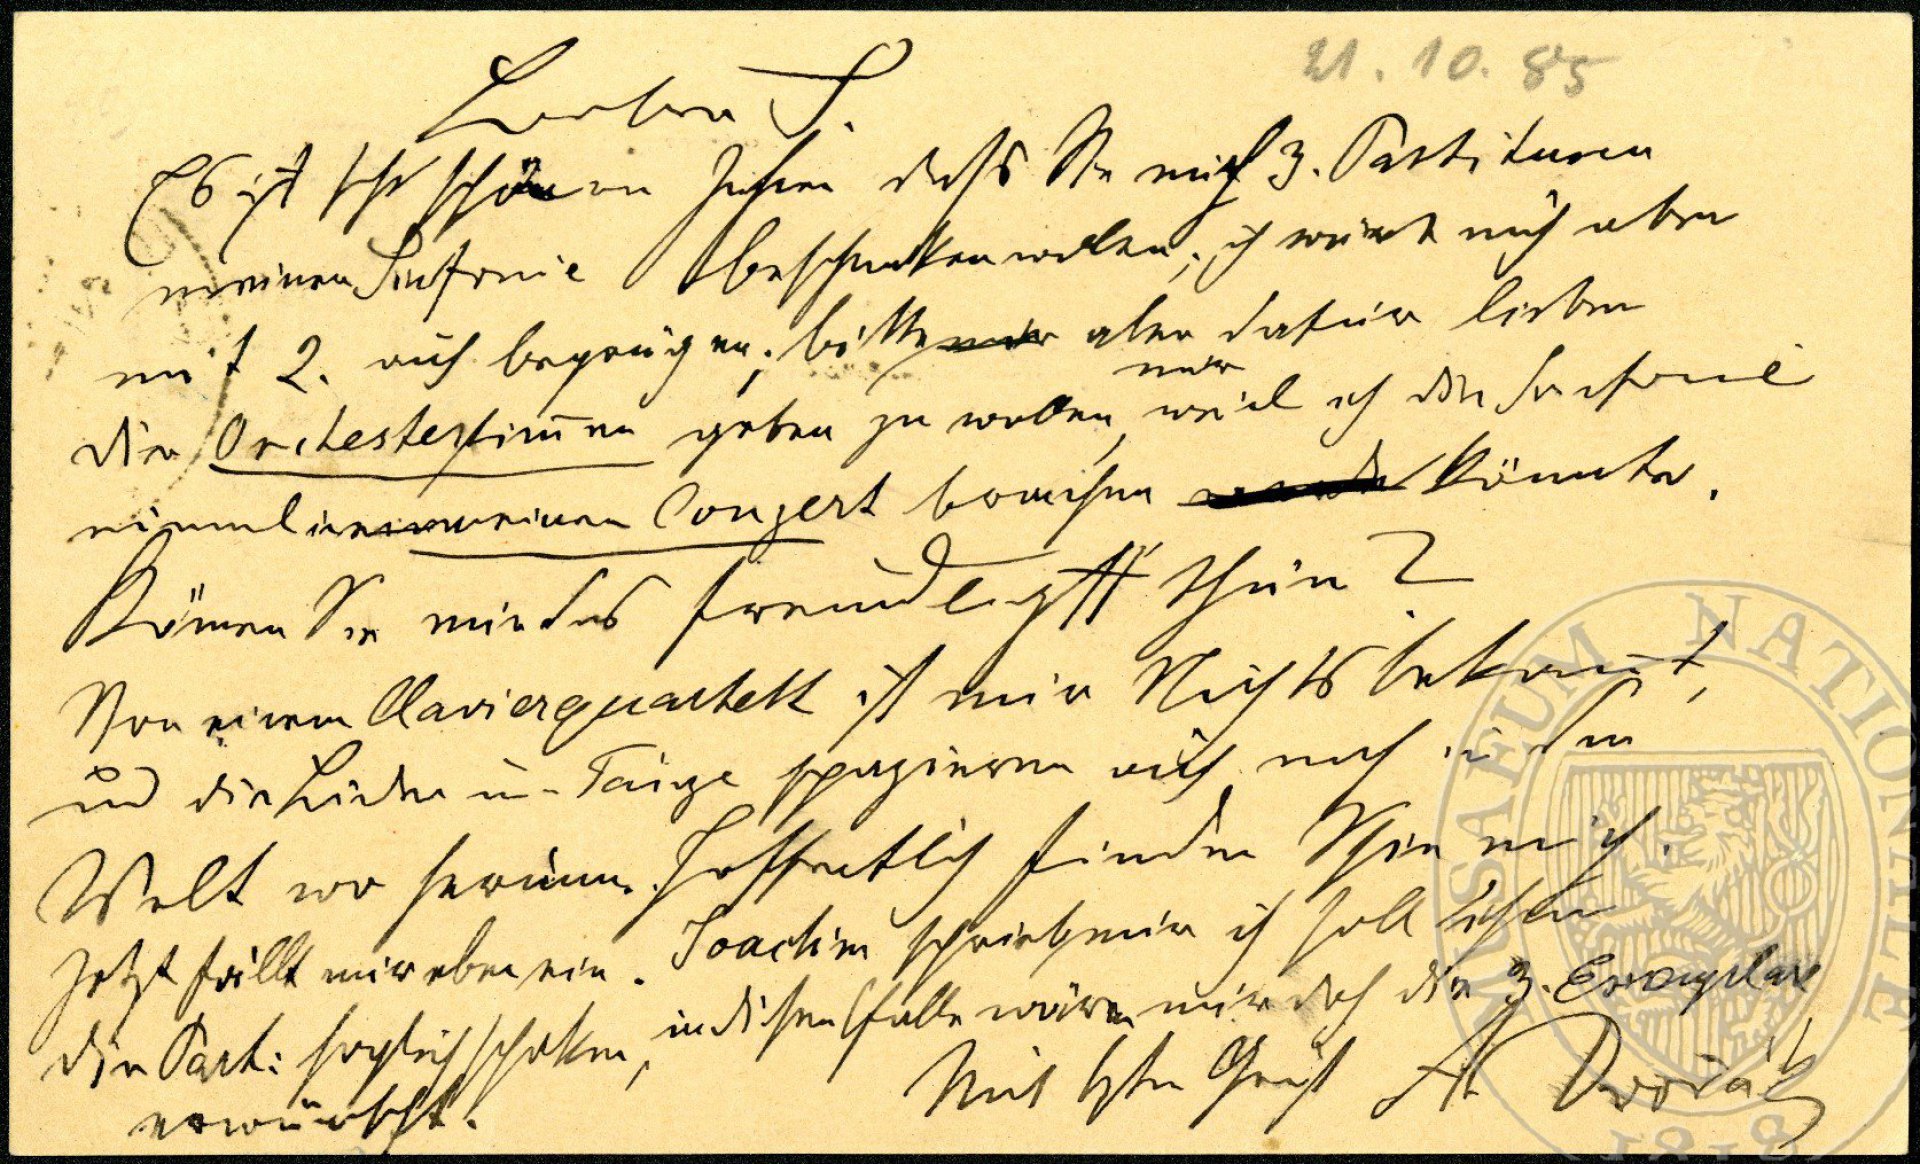 21. 10. 85
Lieber S.
Es ist sehr schön von Ihnen daß Sie mich 3. Partituren
meiner Sinfonie beschenken wollen; ich würde mich aber
mit 2. auch begnügen; bitte mir aber dafür lieber
die Orchesterstimmen geben zu wollen, weil ich die Sinfonie
nur
einmal in meinem Conzert brauchen könnte.
Können Sie mir das freundlichst thun?
Von einem Clavierquartett ist mir Nichts bekannt,
und die Lieder u. Tänze spazieren auch noch in der
Welt wo herum. Hoffentlich finden Sie mich.
Jetzt fällt mir eben ein. Joachim schrieb mir ich soll ihm
die Part: sogleich schicken, in diesem Falle wären mir doch die 3. Exemplare
erwünscht.
Mit bstn Gruß Ant Dvořák
MUSAEUM NATIONALE
1818